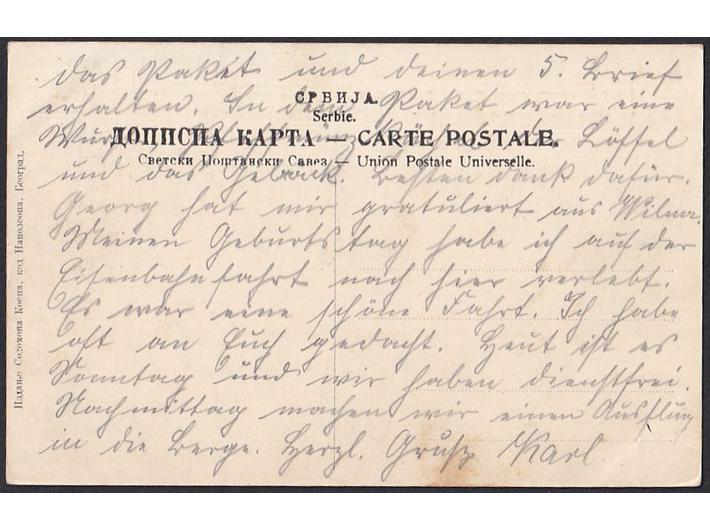 das Paket und deinen 5. Brief
erhalten. In dem Paket war eine
СРБИЈА.
Serbie.
Wurst, der Löffel
ДОПИСНА КАРТА — CARTE POSTALE.
Светски Поштански Савез — Union Postale Universelle.
und das Gebäck. Besten dank dafür.
Georg hat mir gratuliert aus Wilna.
Meinen Geburtstag habe ich auf der
Eisenbahnfahrt nach hier verlebt.
Es war eine schöne Fahrt. Ich habe
oft an Euch gedacht. Heut ist es
Sonntag und wir haben dienstfrei.
Nachmittag machen wir einen Ausflug
in die Berge. Herzl. Gruß Karl.
Издање Соломона Коена, код Наполеона, Београд.